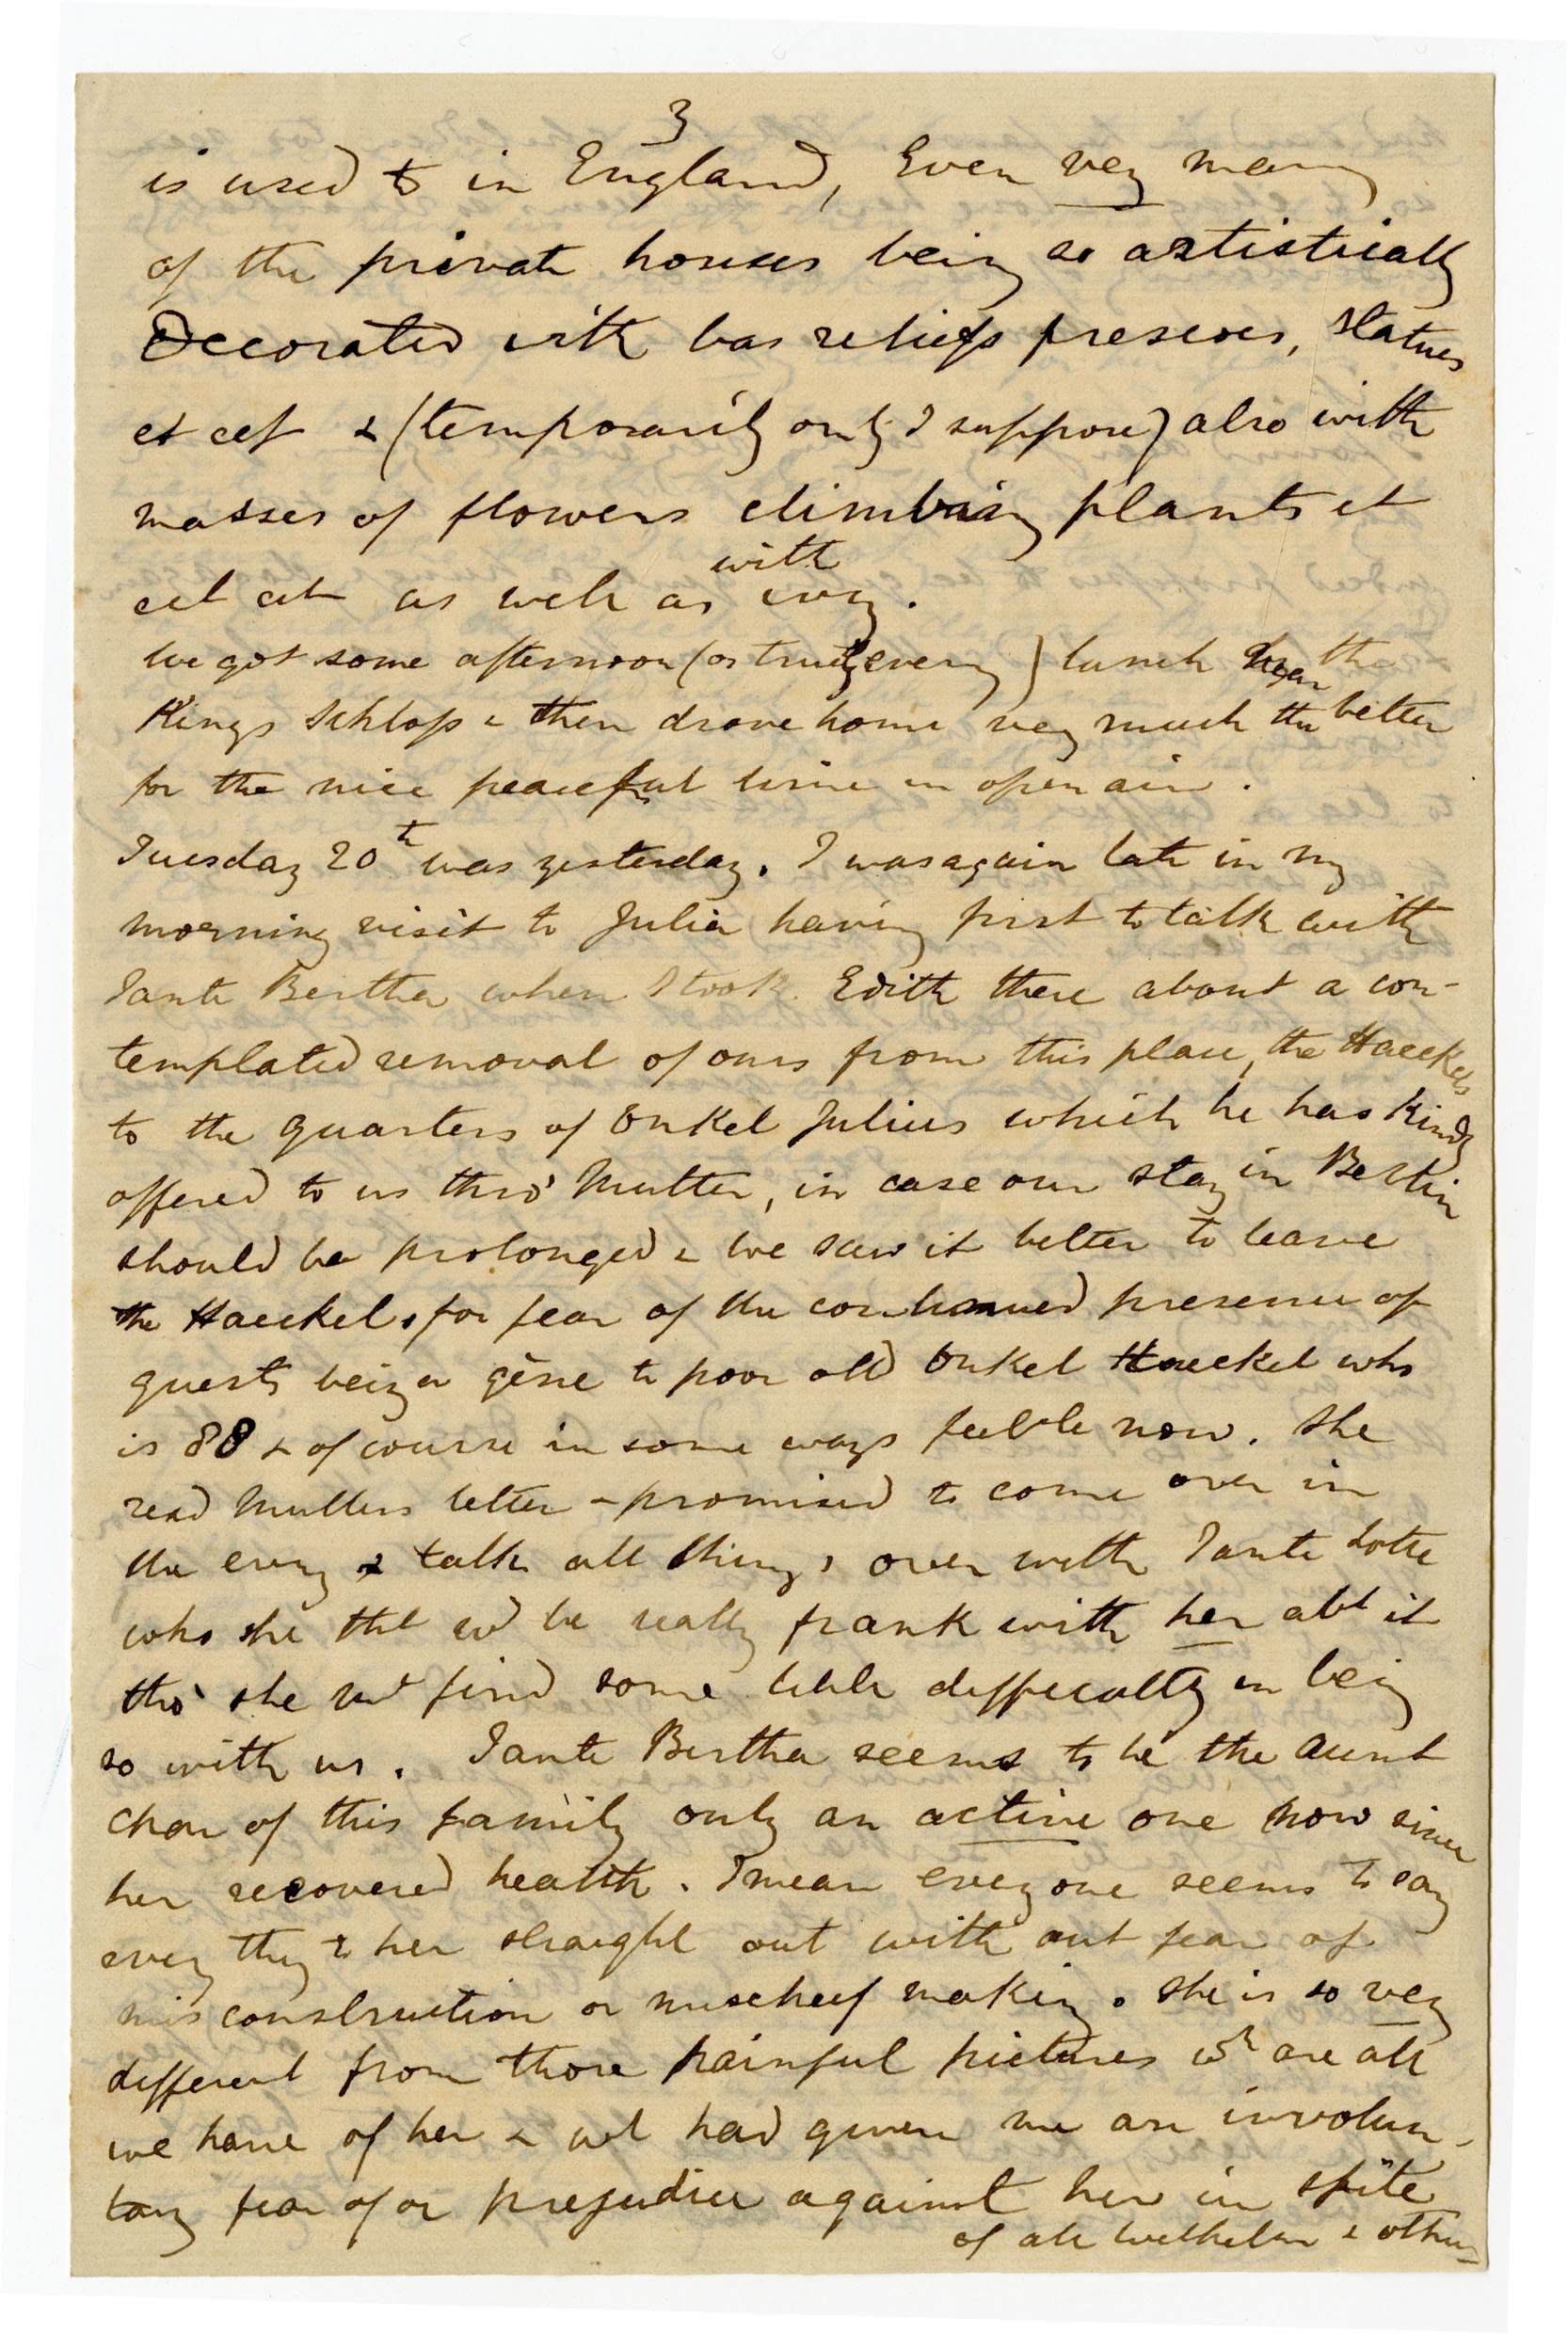 3
is used to in England, Even very many
of the private houses being so artistically
Decorated with bas reliefs frescoes, statues
et cet & (temporarily only I suppose) also with
masses of flowers climbing plants et
cet cet as well as with ivy.
We got some afternoon (or truly eveng) lunch near the
Kings Schloss & then drove home very much the better
for the nice peaceful time in open air.
Tuesday 20th was yesterday. I was again late in my
morning visit to Julia having first to talk with
Tante Bertha when I took Edith there about a con-
templated removal of ours from this place, the Haeckels
to the quarters of Onkel Julius which he has kindly
offered to us thro' Mutter, in case our stay in Berlin
should be prolonged & we saw it better to leave
the Haeckels for fear of the continued presence of
guests being a gêne to poor old Onkel Haeckel who
is 88 & of course in some ways feeble now. She
read Mutters letter & promised to come over in
the eveng & talk all things over with Tante Lotte
who she tht wd be really frank with her abt it
tho' she wd find some little difficulty in being
so with us. Tante Bertha seems to be the Aunt
Char of this family only an active one now since
her recovered health. I mean every one seems to say
every thg to her straight out with out fear of
misconstruction or mischeef making. She is so very
different from those painful pictures wh are all
we have of her & wh had given me an involun-
tary fear of or prejudice against her in spite
of all Wilhelm & others